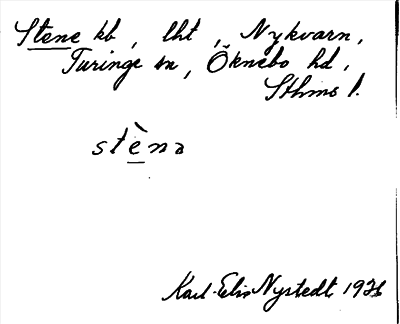 Stene kb, lht, Nykvarn,
Turinge sn, Öknebo hd,
Sthms l.
stè̱nə
Karl-Elis Nystedt 1926